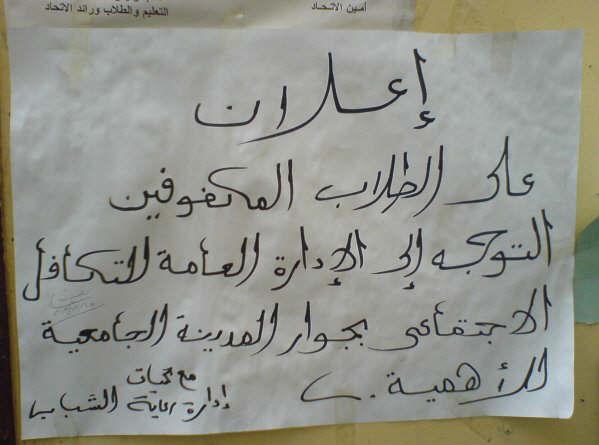 أمين الاتحاد
التعليم والطلاب ورائد الاتحاد
إعلان
على الطلاب المكفوفين
التوجه إلى الإدارة العامة للتكافل
الاجتماعى بجوار المدينة الجامعية
للأهمية.
مع تحيات
إدارة رعاية الشباب